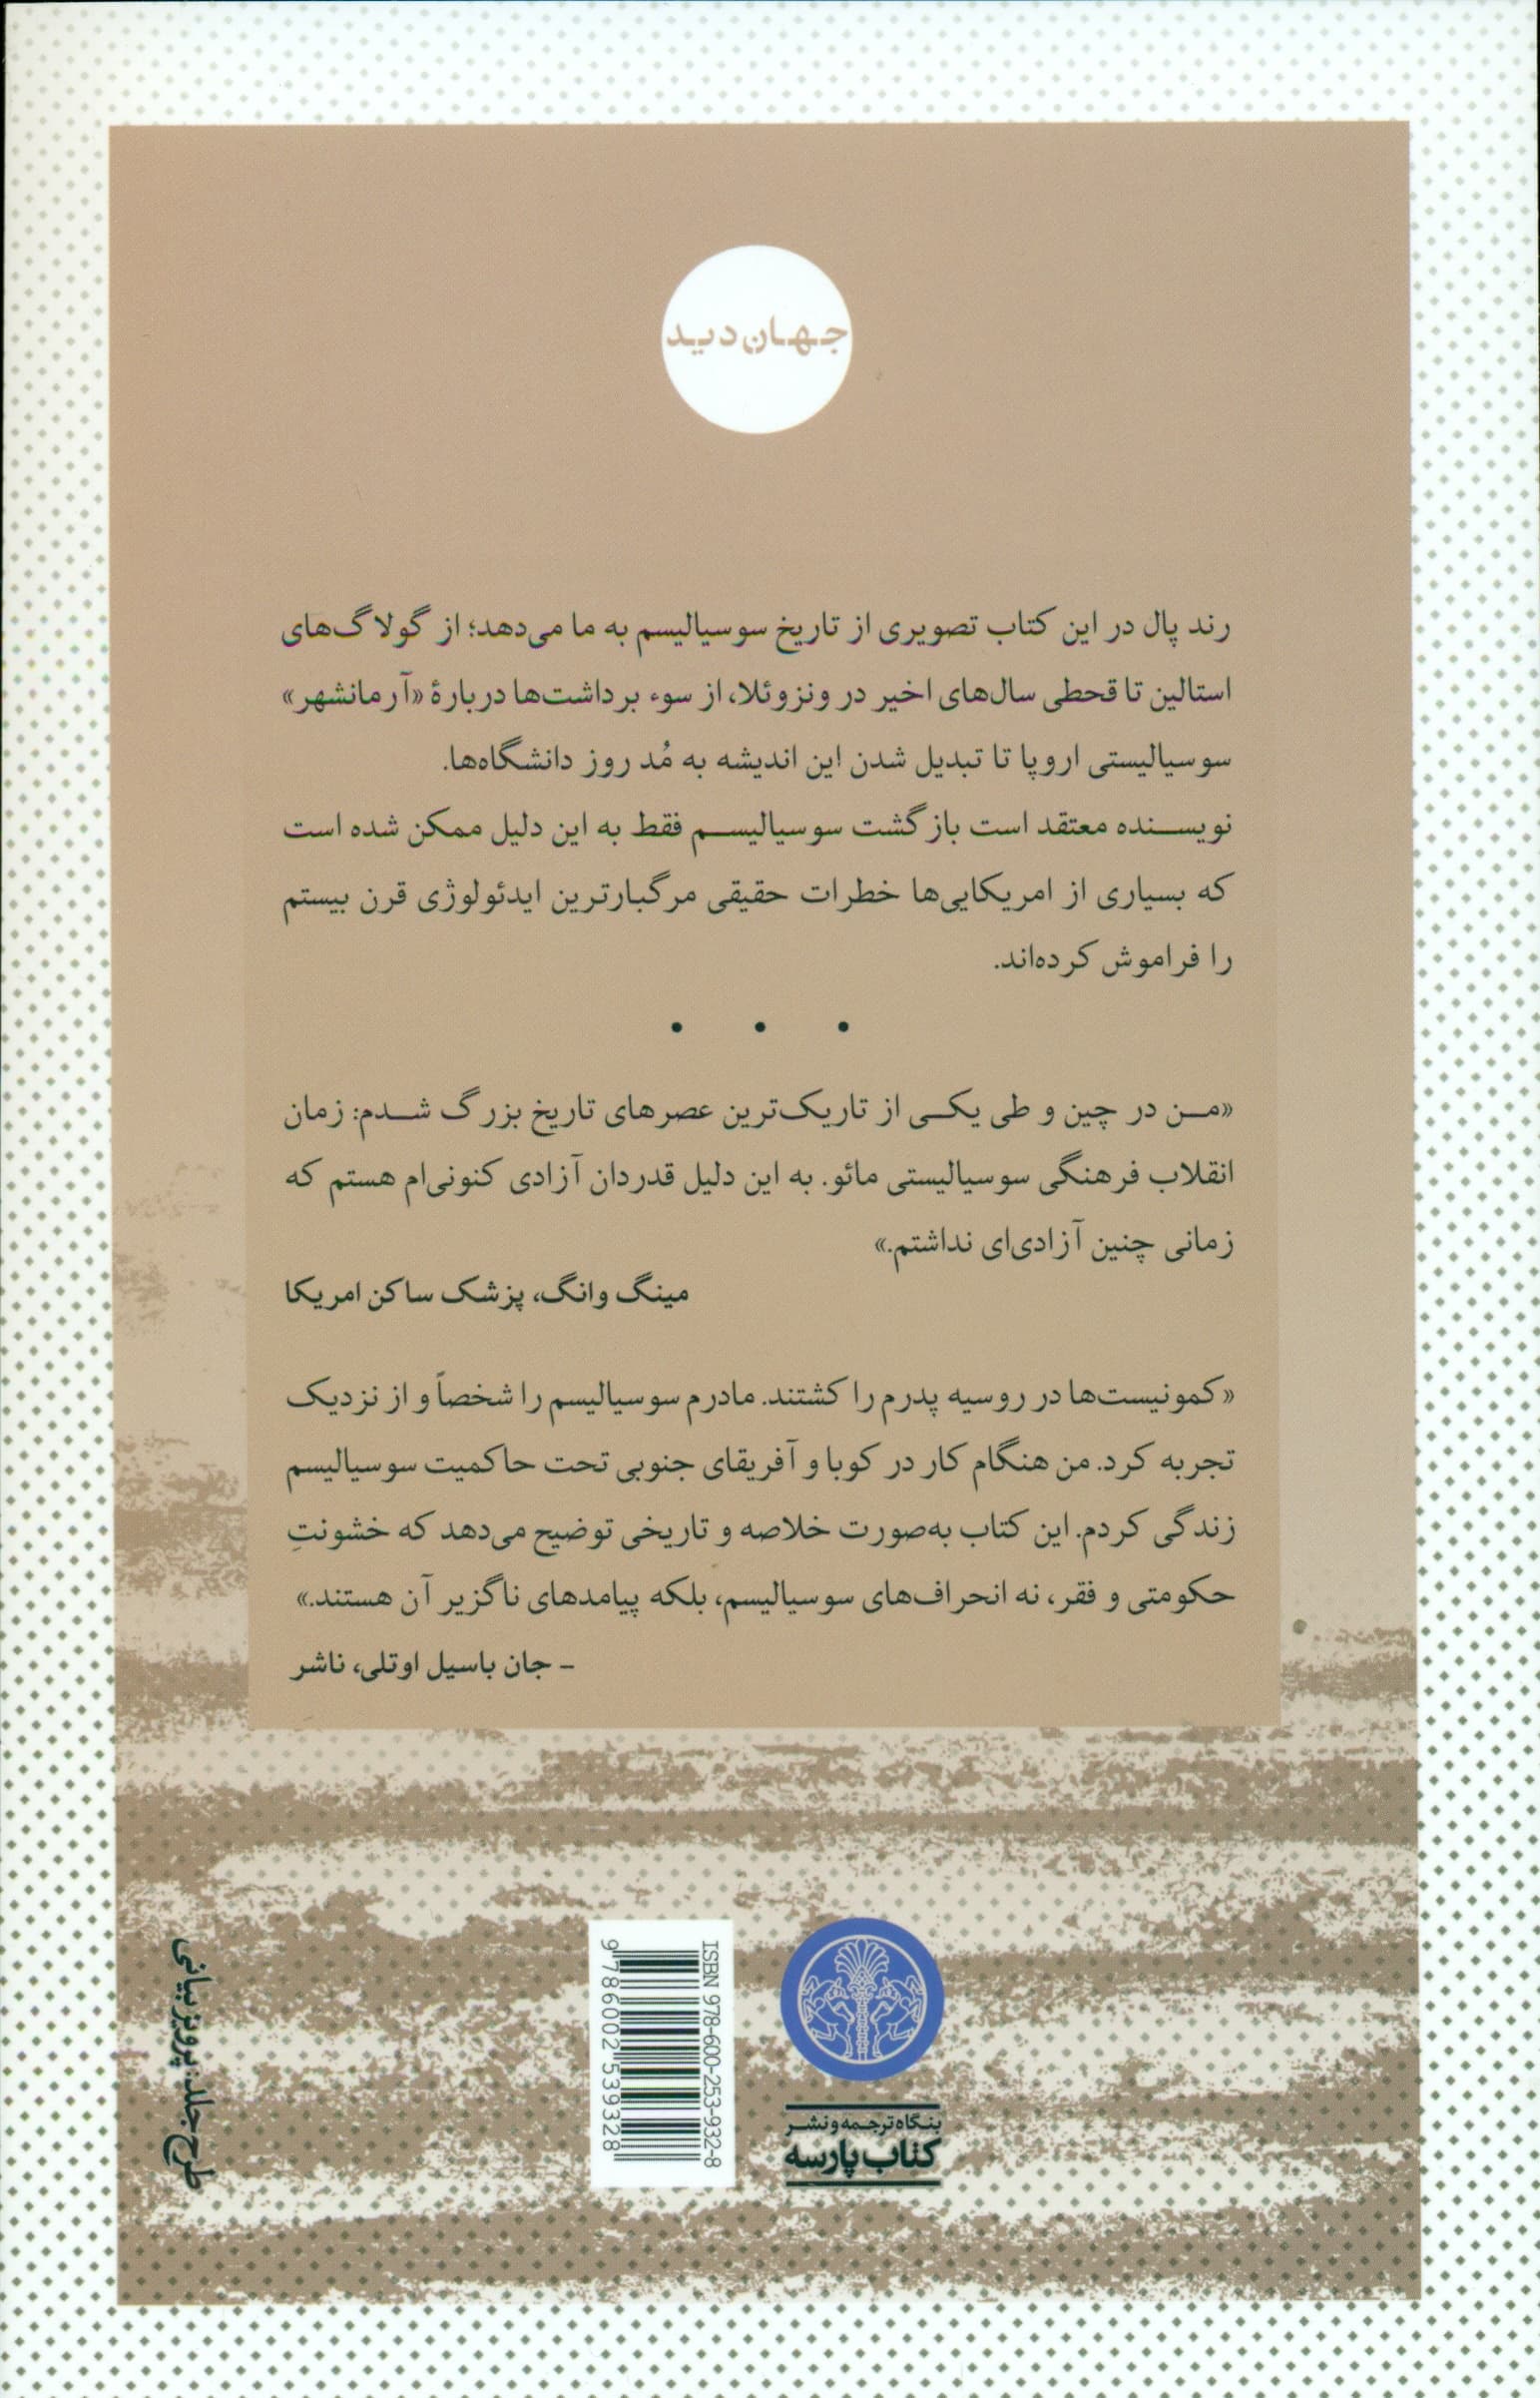 جهان‌دید
رند پال در این کتاب تصویری از تاریخ سوسیالیسم به ما می‌دهد؛ از گولاگ‌های
استالین تا قحطی سال‌های اخیر در ونزوئلا، از سوء برداشت‌ها دربارهٔ «آرمانشهر»
سوسیالیستی اروپا تا تبدیل شدن این اندیشه به مُد روز دانشگاه‌ها.
نویسنده معتقد است بازگشت سوسیالیسم فقط به این دلیل ممکن شده است
که بسیاری از امریکایی‌ها خطرات حقیقی مرگبارترین ایدئولوژی قرن بیستم
را فراموش کرده‌اند.
• • •
«من در چین و طی یکی از تاریک‌ترین عصرهای تاریخ بزرگ شدم: زمان
انقلاب فرهنگی سوسیالیستی مائو. به این دلیل قدردان آزادی کنونی‌ام هستم که
زمانی چنین آزادی‌ای نداشتم.»
مینگ وانگ، پزشک ساکن امریکا
«کمونیست‌ها در روسیه پدرم را کشتند. مادرم سوسیالیسم را شخصاً و از نزدیک
تجربه کرد. من هنگام کار در کوبا و آفریقای جنوبی تحت حاکمیت سوسیالیسم
زندگی کردم. این کتاب به‌صورت خلاصه و تاریخی توضیح می‌دهد که خشونتِ
حکومتی و فقر، نه انحراف‌های سوسیالیسم، بلکه پیامدهای ناگزیر آن هستند.»
- جان باسیل اوتلی، ناشر
بنگاه ترجمه و نشر
کتاب پارسه
ISBN 978-600-253-932-8
9 786002 539328
طرح جلد: پرویز بیانی